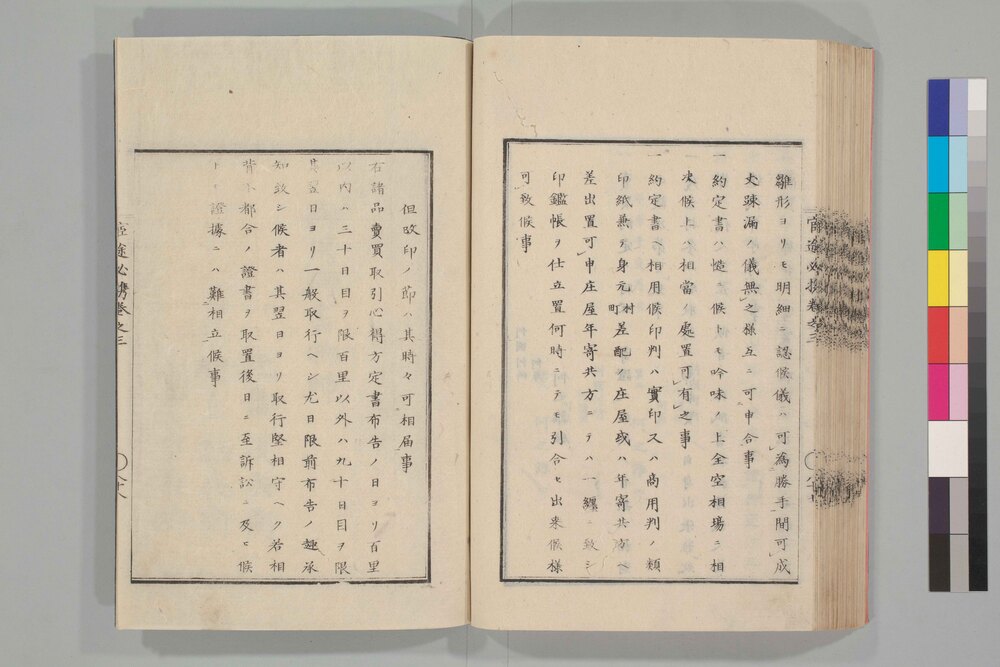 雛形ヨリモ明細ニ認候儀ハ可為勝手間可成
丈疎漏ノ儀無之様互ニ可申合事
一約定書ハ慥ナ候トモ吟味ノ上全空相場ニ相
決候上ハ相當ノ處置可有之事
一約定書ニ相用候印判ハ實印又ハ商用判ノ類
印紙兼テ身元村町差配ノ庄屋或ハ年寄共方ヘ
差出置可申庄屋年寄共方ニテハ一纏ニ致シ
印鑑帳ヲ仕立置何時ニテモ引合セ出来候様
可致候事
但改印ノ節ハ其時々可相届事
右諸品賣買取引心得方定書布告ノ日ヨリ百里
以内ハ三十日目ヲ限百里以外ハ九十日目ヲ限
其翌日ヨリ一般取行ヘシ尤日限前布告ノ趣承
知致シ候者ハ其翌日ヨリ取行堅相守ヘク若相
背不都合ノ證書ヲ取置後日ニ至訴訟ニ及ヒ候
トモ證據ニハ難相立候事
官途必携巻之三